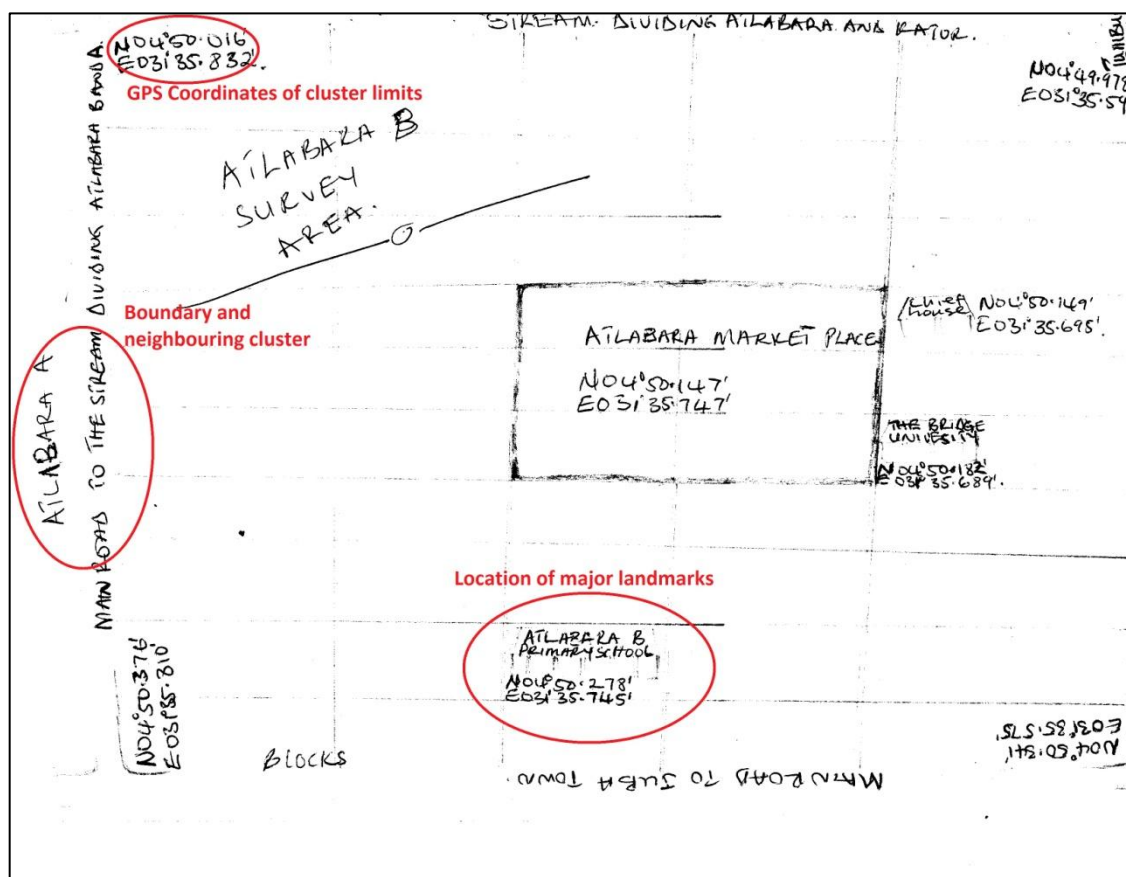 STREAM DIVIDING AILABARA AND KATOR.
N04°50.016'
E031°35.832'.
GPS Coordinates of cluster limits
N04°49.978
E031°35.59
AILABARA B
SURVEY
AREA.
MAIN ROAD TO THE STREAM DIVIDING AILABARA B AND A.
AILABARA A
Boundary and
neighbouring cluster
AILABARA MARKET PLACE
N04°50.147'
E031°35.747'
chief
house
N04°50.149'
E031°35.695'.
THE BRIDGE
UNIVESITY
N04°50.182'
E031°35.689'.
Location of major landmarks
AILABARA B
PRIMARY SCHOOL
N04°50.278'
E031°35.745'
N04°50.376'
E031°35.810'
BLOCKS
MAIN ROAD TO JUBA TOWN
N04°50.341'
E031°35.575'